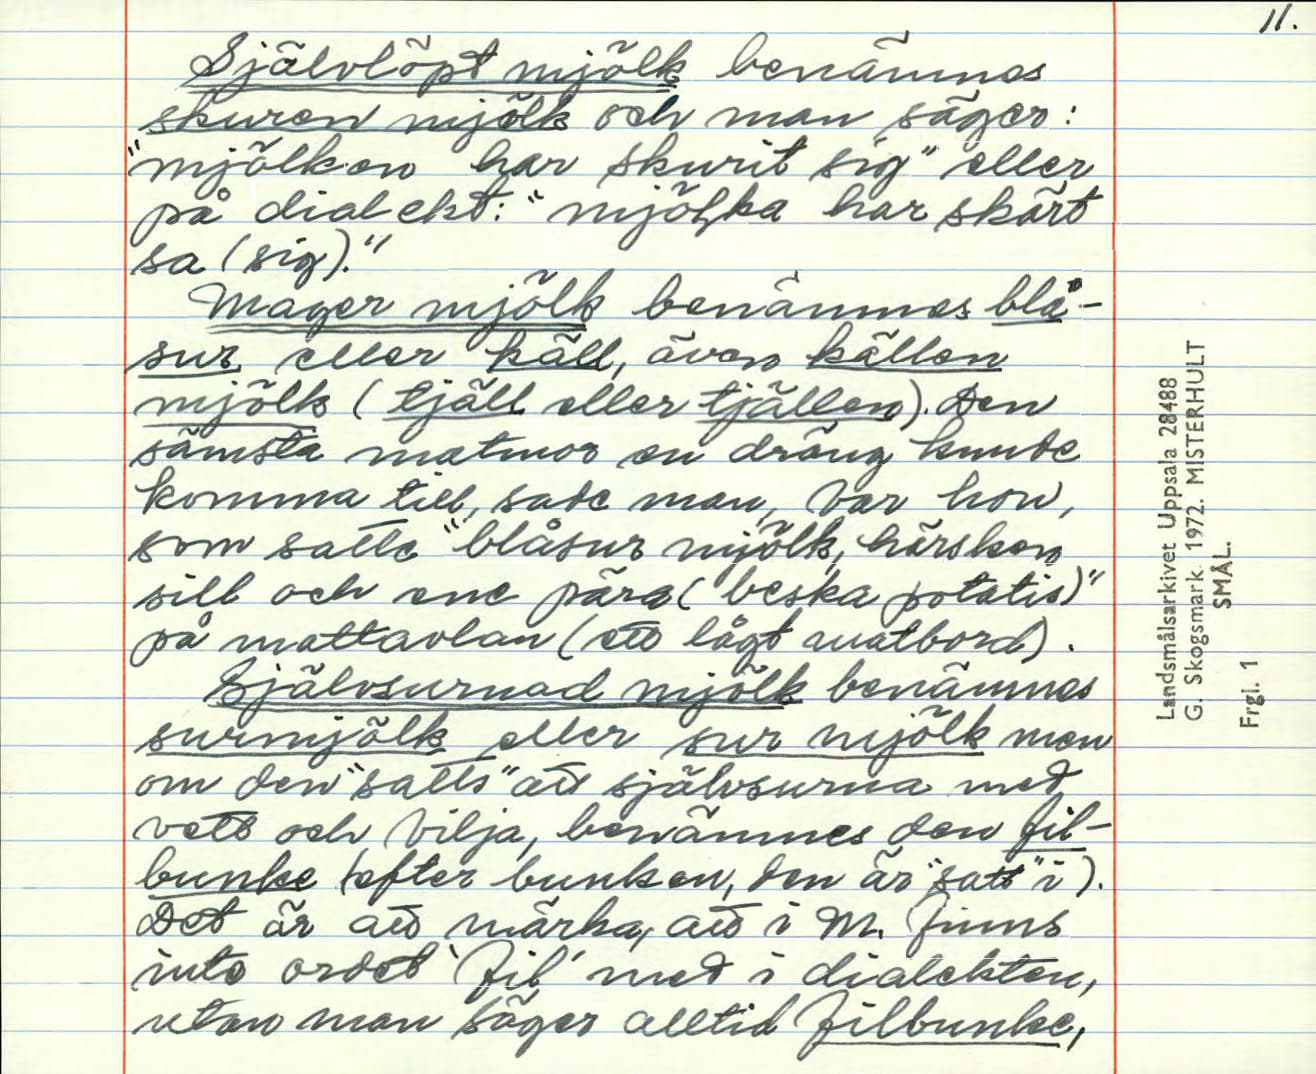 11.
Självlöpt mjölk benämnes
skuren mjölk och man säger:
"mjölken har skurit sig" eller
på dialekt: "mjölka har skärt
sa (sig)."
Mager mjölk benämnes blå-
sur eller käll, även källen
mjölk (tjäll eller tjällen). Den
sämsta matmor en dräng kunde
komma till, sade man, var hon,
som satte "blåsur mjölk, härsken
sill och ene pära (beska potatis)"
på mattavlan (ett lågt matbord).
Självsurnad mjölk benämnes
surmjölk eller sur mjölk men
om den "satts" att självsurna med
vett och vilja, benämnes den fil-
bunke (efter bunken, den är "satt" i).
Det är att märka, att i M. finns
inte ordet 'fil' med i dialekten,
utan man säger alltid filbunke,
Landsmålsarkivet Uppsala 28488
G. Skogsmark 1972. MISTERHULT
SMÅL.
Frgl. 1